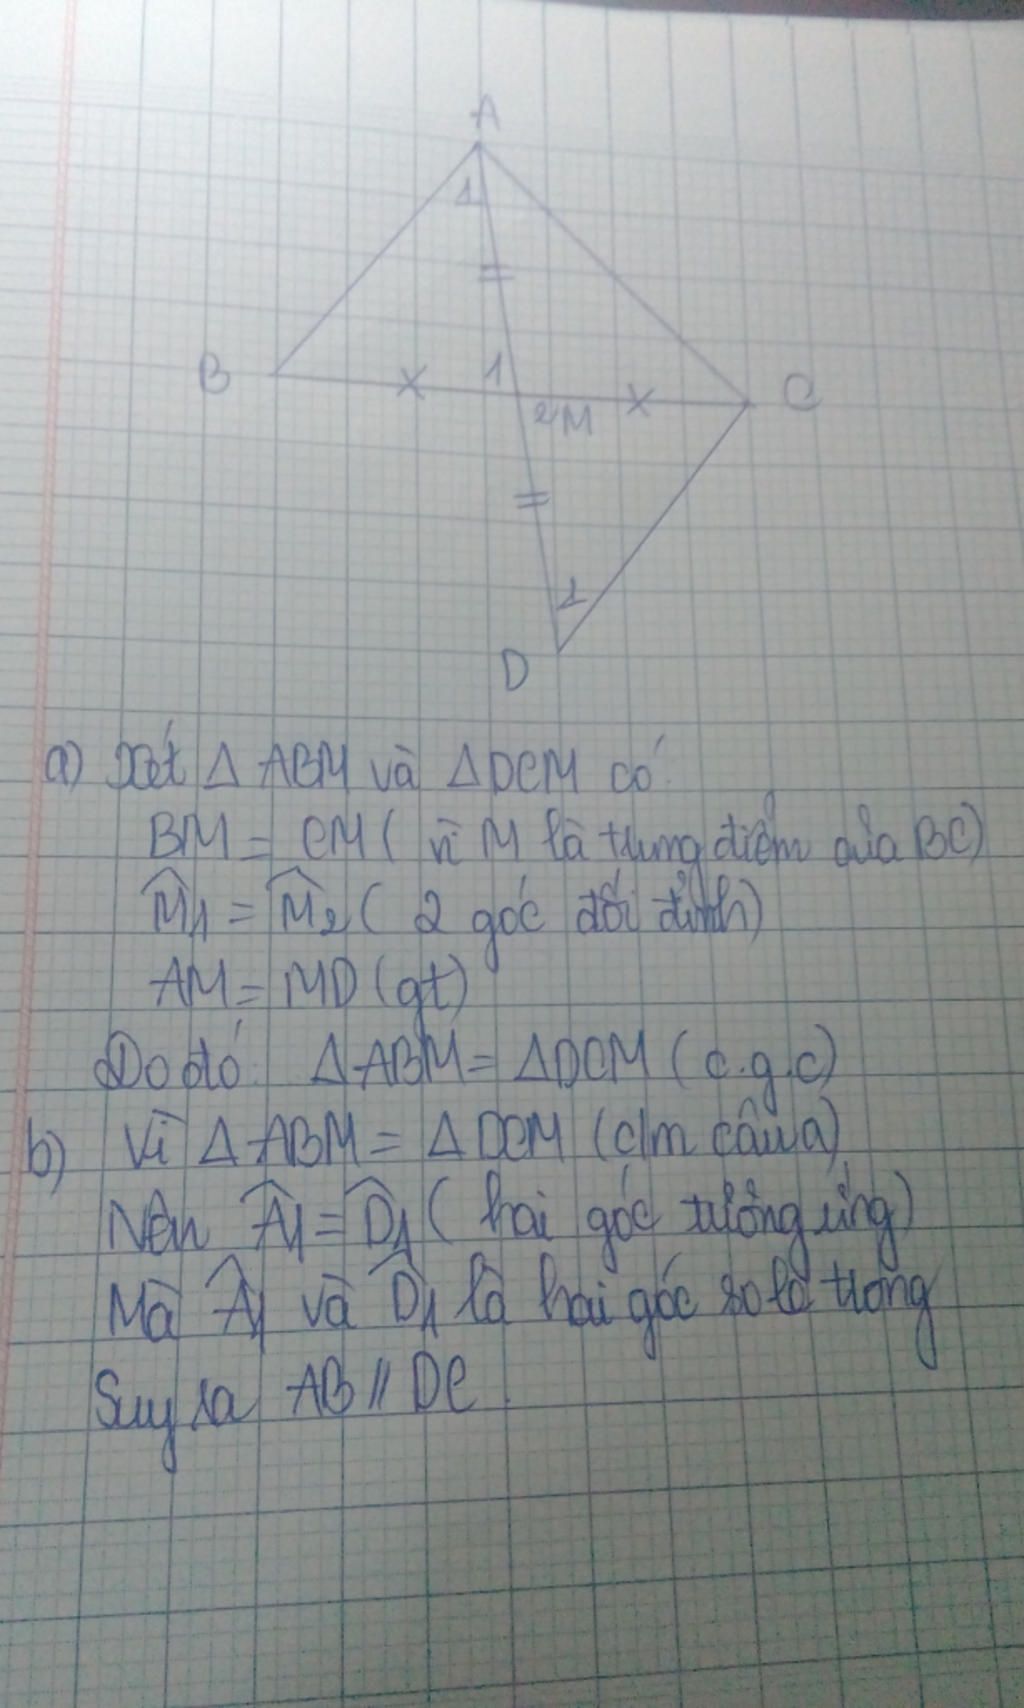 A
1
B
1
C
2 M
1
D
a) Xét Δ ABM và Δ DCM có:
BM = CM ( vì M là trung điểm của BC)
M̂1 = M̂2 ( 2 góc đối đỉnh)
AM = MD (gt)
Do đó: Δ ABM = Δ DCM ( c.g.c)
b) Vì Δ ABM = Δ DCM (c/m câu a)
Nên Â1 = D̂1 ( hai góc tương ứng)
Mà Â1 và D̂1 là hai góc so le trong
Suy ra AB // DC.